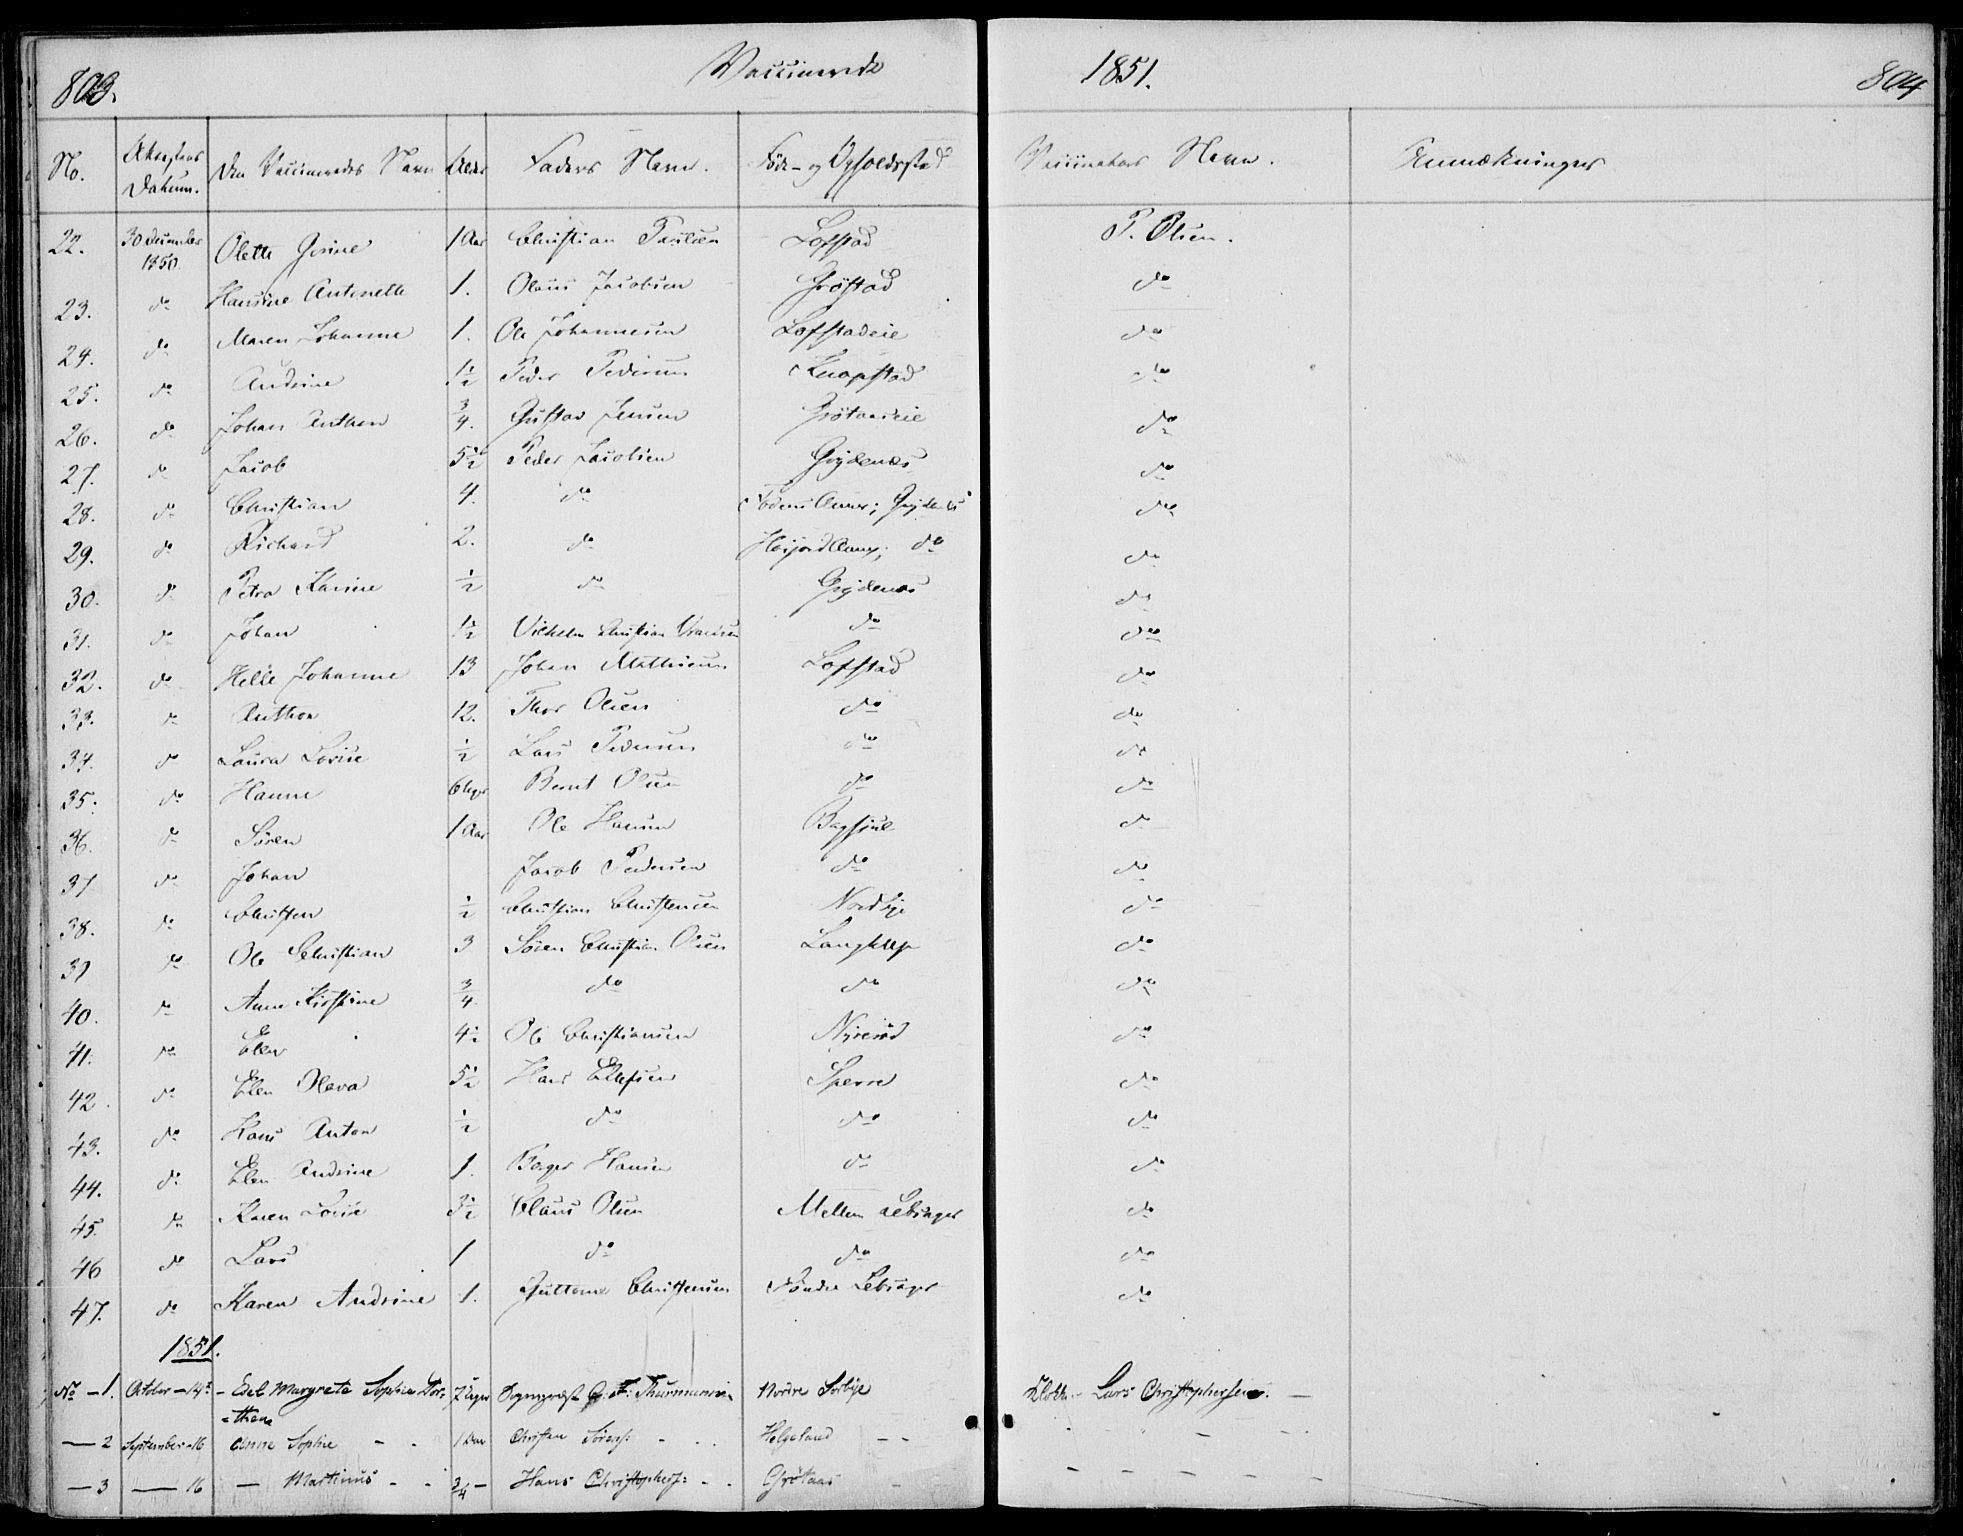 803. Vaccinerede 1851. 804
No. Attestens Datum. Den Vaccineredes Navn Alder Faders Navn. Føde- og Opholdssted Vaccinators Navn. Anmærkninger
22. 30 December 1850. Olette Gorine 1 Aar Christian Paulsen Lofstad P. Olsen.
23. do Hansine Antonette 1. Olaus Jacobsen Grøstad do
24. do Maren Johanne 1. Ole Johannesen Lofstadeie do
25. do Andrine 1½ Peder Pedersen Knapstad do
26. do Johan Anthon ¾. Gustav Jensen Grøtaaseie do
27. do Jacob 5½ Peder Jacobsen Grydenæs do
28. do Christian 4. do Grydenæs do
29. do Richard 2. do Høijord Annex; do do
30. do Petra Karine ½ do Grydenæs do
31. do Johan 1½ Vilhelm Christian do do
32. do Helle Johanne 13 Johan Mathisen Lofstad do
33. do Anthon 12. Thor Olsen do do
34. do Laura Lovise ½ Lars Pedersen do do
35. do Hanne 6 Uger Bernt Olsen do do
36. do Søren 1 Aar Ole Hansen do
37 do Johan Jacob Pedersen do do
38. do Christen ½ Christian Christensen do
39 do Ole Christian 3 Søren Christian Olsen Langklep do
40. do Anne Kirstine ¾. do do do
41. do Elen 4½ Ole Christiansen do
42. do Elen Oleva 5½ Hans Ellefsen Sperre do
43. do Hans Anton ½ do do do
44. do Elen Andrine 1. Borger Hansen do do
45. do Karen Lovise 3½ Claus Olsen Mellem Lebsager do
46 do Lars 1 do do do
47. do Karen Andrine 1. Guttorm Christensen Søndre Lebsager do
1851.
No - 1. October - 14de - Edel Margrete Sophie Dor= 7 Uger Sognepræst Thurmann Nordre Sørbye Klokk. Lars Christophersen. -
=thea
- 2 September - 16 Anne Sophie - - 1 Aar Christen Sørens: - Helgeland - -
- 3 - 16 - Martinus - - ¾ - Hans Christophers: - - Grøtaas -